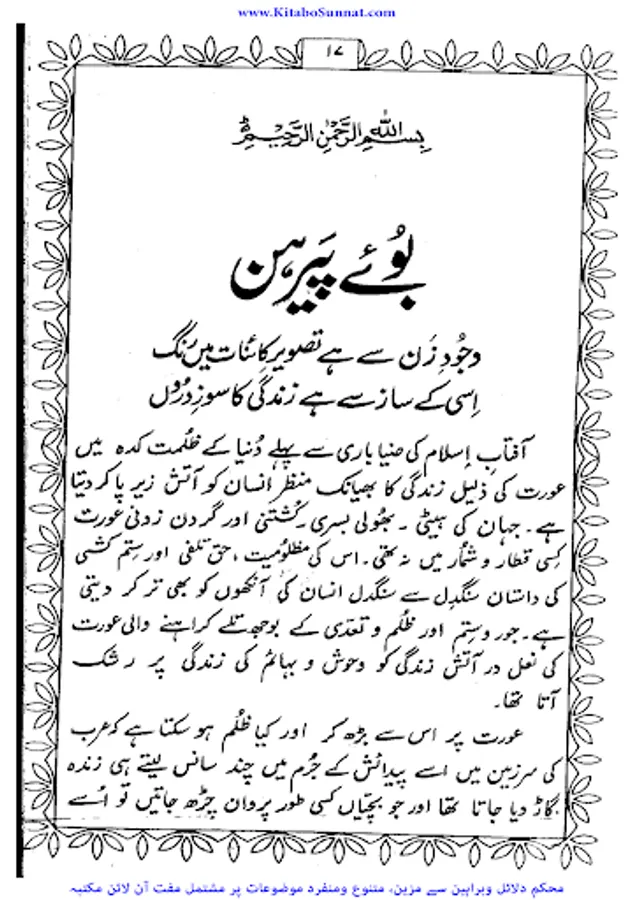 www.KitaboSunnat.com
۱۷
بِسْمِ اللهِ الرَّحْمٰنِ الرَّحِيْمِ
بُوئے پَیرہن
وجُودِ زَن سے ہے تصویرِ کائنات میں رنگ
اِسی کے ساز سے ہے زندگی کا سوزِ دروں
آفتابِ اِسلام کی ضیا باری سے پہلے دُنیا کے ظلمت کدہ میں
عورت کی ذلیل زندگی کا بھیانک منظر اِنسان کو آتش زیرِ پا کر دیتا
ہے۔ جہان کی بیٹی ۔ بھُولی بسری ۔ کُشتنی اور گردن زدنی عورت
کِسی قطار و شمار میں نہ تھی۔ اس کی مظلُومیت، حق تلفی اور ستم کشی
کی داستان سنگدِل سے سنگدل انسان کی آنکھوں کو بھی تر کر دیتی
ہے۔ جور و ستم اور ظُلم و تعدی کے بوجھ تلے کراہنے والی عورت
کی نعل در آتش زندگی کو وحوش و بہائم کی زندگی پر رشک
آتا تھا۔
عورت پر اس سے بڑھ کر اور کیا ظُلم ہو سکتا ہے کہ عرب
کی سرزمین میں اسے پیدائش کے جُرم میں چند سانس لیتے ہی زندہ
گاڑ دیا جاتا تھا اور جو بچیاں کسی طور پروان چڑھ جاتیں تو اُسے
محکم دلائل وبراہین سے مزین، متنوع ومنفرد موضوعات پر مشتمل مفت آن لائن مکتبہ